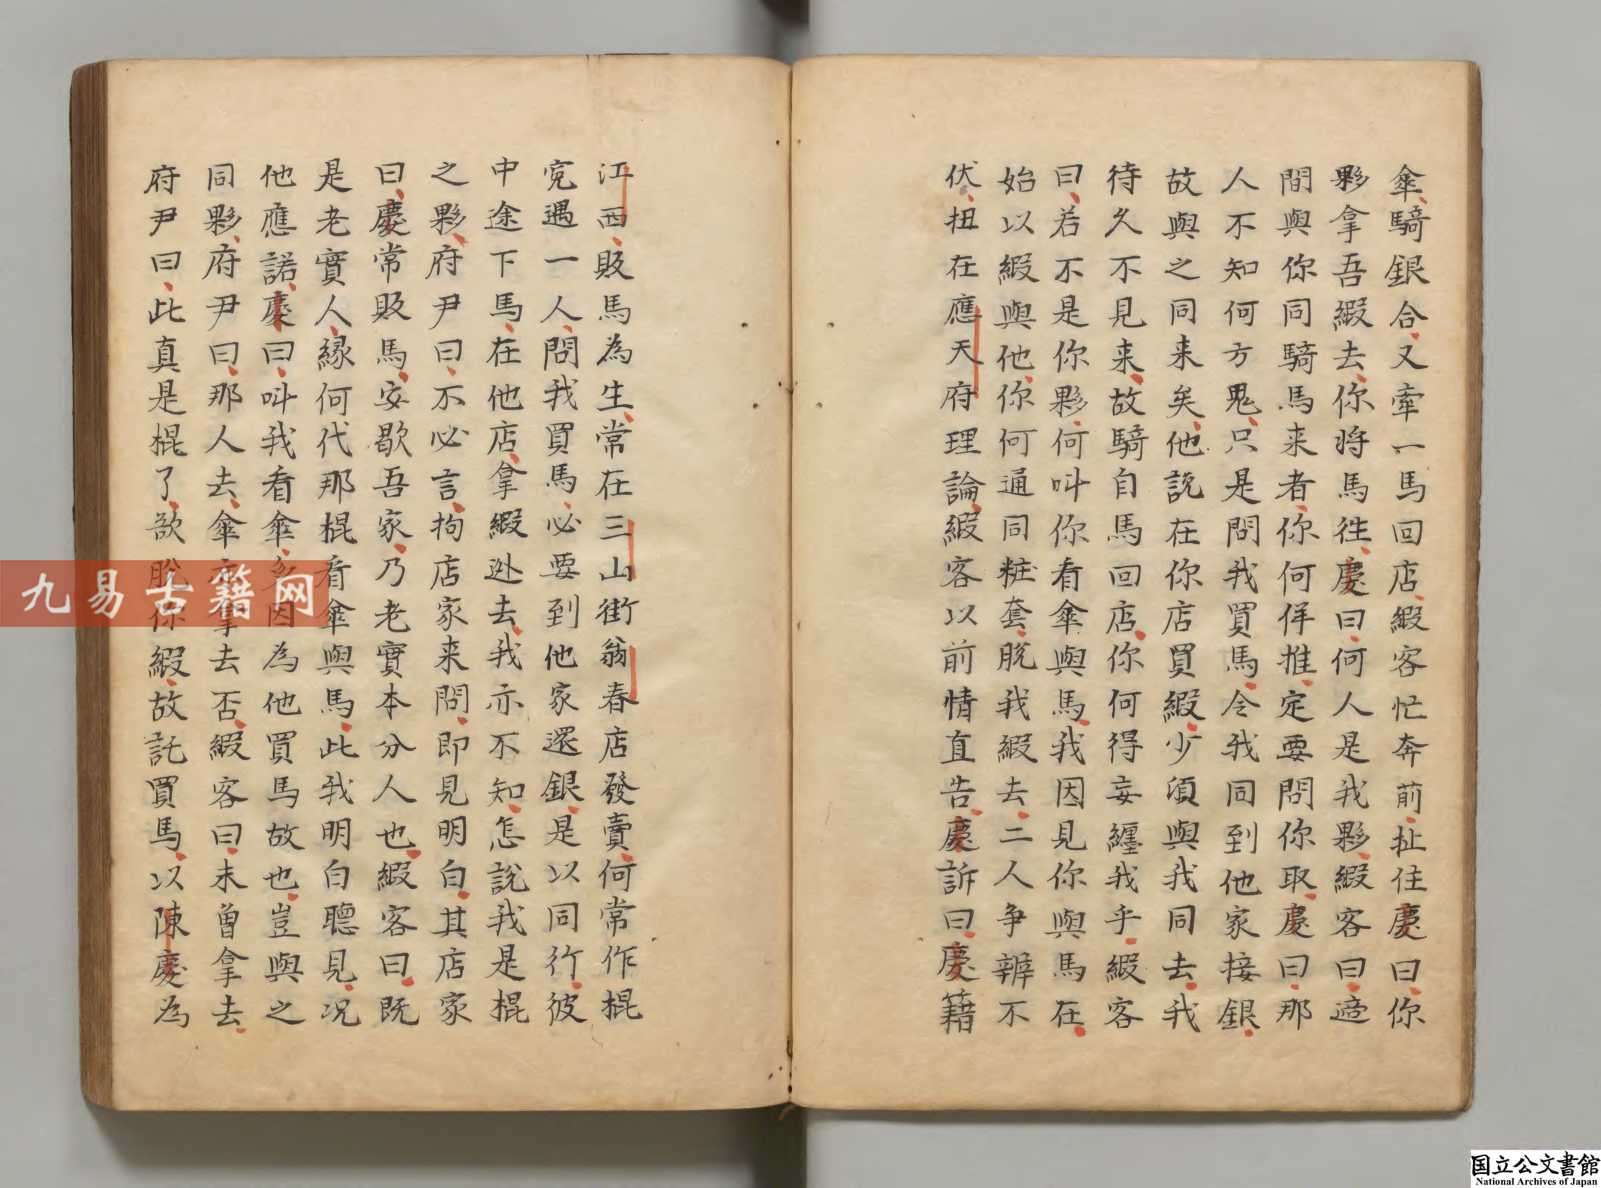 傘、騎銀合、又牽一馬回店、緞客忙奔前、扯住慶曰、你
夥拿吾緞去、你將馬往、慶曰、何人是我夥、緞客曰、適
間與你同騎馬来者、你何佯推、定要問你取、慶曰、那
人不知何方鬼、只是問我買馬、今我同到他家接銀、
故與之同来矣、他説在你店買緞、少頃與我同去、我
待久不見来、故騎自馬回店、你何得妄纏我乎、緞客
曰、若不是你夥、何叫你看傘與馬、我因見你與馬在、
始以緞與他、你何通同粧套、脱我緞去、二人争辨不
伏、扭在應天府理論、緞客以前情直告、慶訴曰、慶籍
江西、販馬為生、常在三山街翁春店發賣、何常作棍、
寃遇一人、問我買馬、必要到他家還銀、是以同行、彼
中途下馬、在他店、拿緞迯去、我亦不知、怎説我是棍
之夥、府尹曰、不必言、拘店家来問、即見明白、其店家
曰、慶常販馬、安歇吾家、乃老實本分人也、緞客曰、既
是老實人、縁何代那棍看傘與馬、此我明白聽見、况
他應諾、慶曰、叫我看傘、因為他買馬故也、豈與之
同夥、府尹曰、那人去、傘拿去否、緞客曰、未曽拿去、
府尹曰、此真是棍了、欲脱你緞、故託買馬、以陳慶為
九易古籍网
国立公文書館
National Archives of Japan